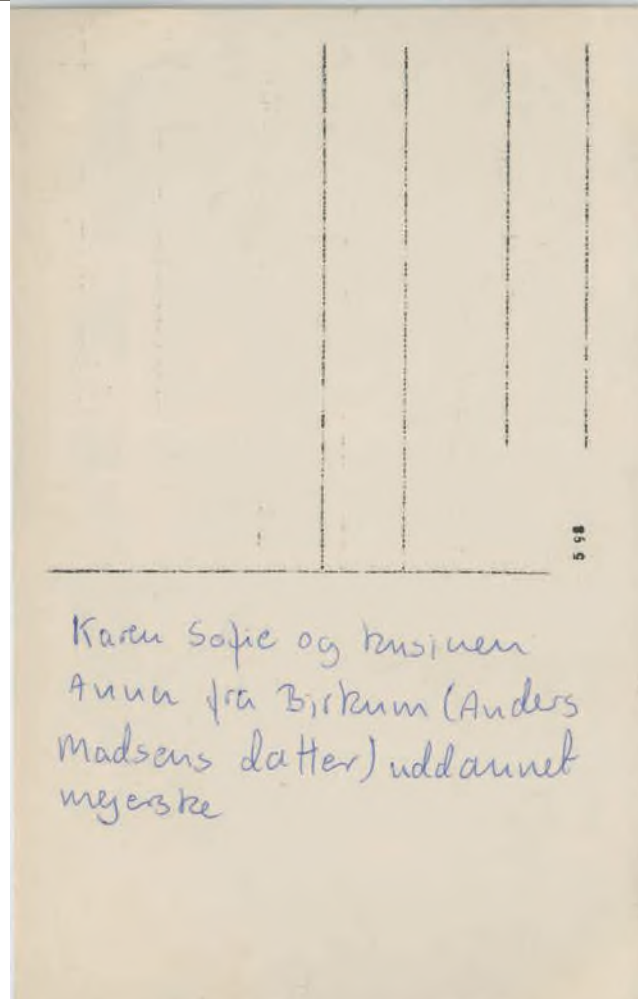 Karen Sofie og kusinen
Anna fra Birkum (Anders
Madsens datter) uddannet
mejerske
598